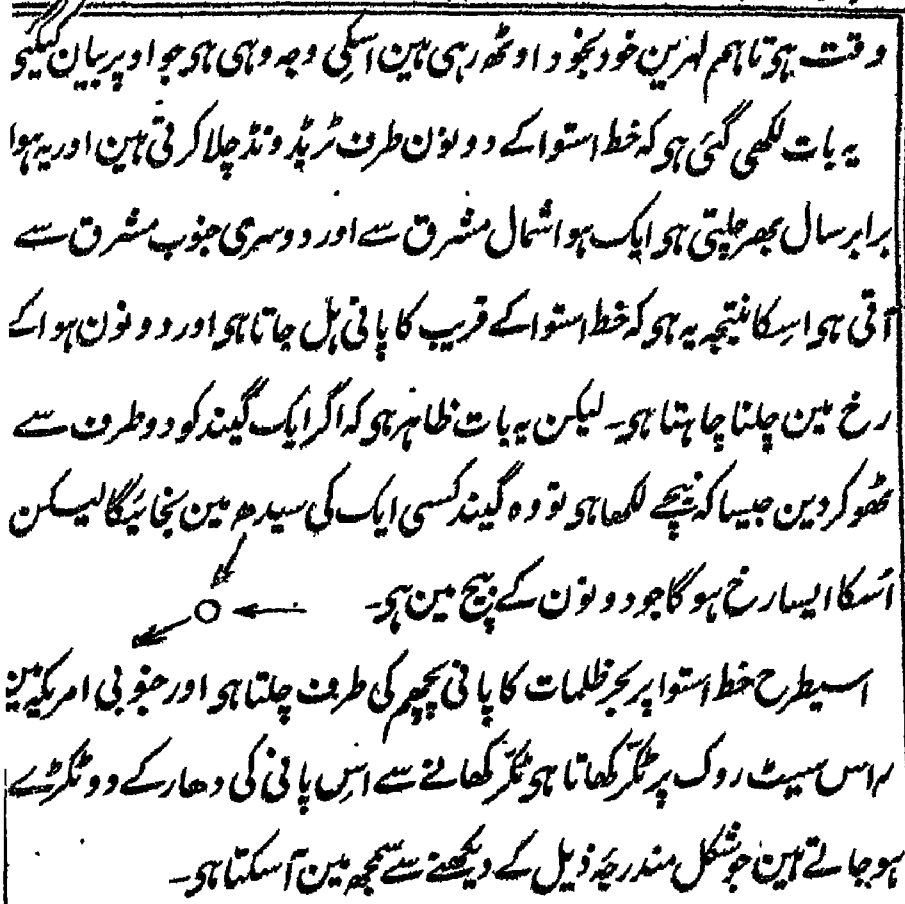 وقت ہو تاہم لہرین خود بخود اوٹھ رہی ہین اسکی وجہ وہی ہی جو اوپر بیان کیگئی
یہ بات لکھی گئی ہی کہ خط استوا کے دونون طرف ٹریڈ ونڈ چلا کرتی ہین اور یہ ہوا
برابر سال بھر چلتی ہی ایک ہوا شمال مشرق سے اور دوسری جنوب مشرق سے
آتی ہی اسکا نتیجہ یہ ہی کہ خط استوا کے قریب کا پانی ہل جاتا ہی اور دونون ہوا کے
رخ مین چلنا چاہتا ہی۔ لیکن یہ بات ظاہر ہی کہ اگر ایک گیند کو دو طرف سے
ٹھوکر دین جیسا کہ نیچے لکھا ہی تو وہ گیند کسی ایک کی سیدھ مین نجائیگا لیکن
اُسکا ایسا رخ ہوگا جو دونون کے بیچ مین ہی۔
اسیطرح خط استوا پر بحر ظلمات کا پانی پچھم کی طرف چلتا ہی اور جنوبی امریکہ مین
راس سینٹ روک پر ٹکّر کھاتا ہی ٹکّر کھانے سے اس پانی کی دھار کے دو ٹکڑے
ہو جاتے ہین جو شکل مندرجہ ذیل کے دیکھنے سے سمجھ مین آسکتا ہی۔